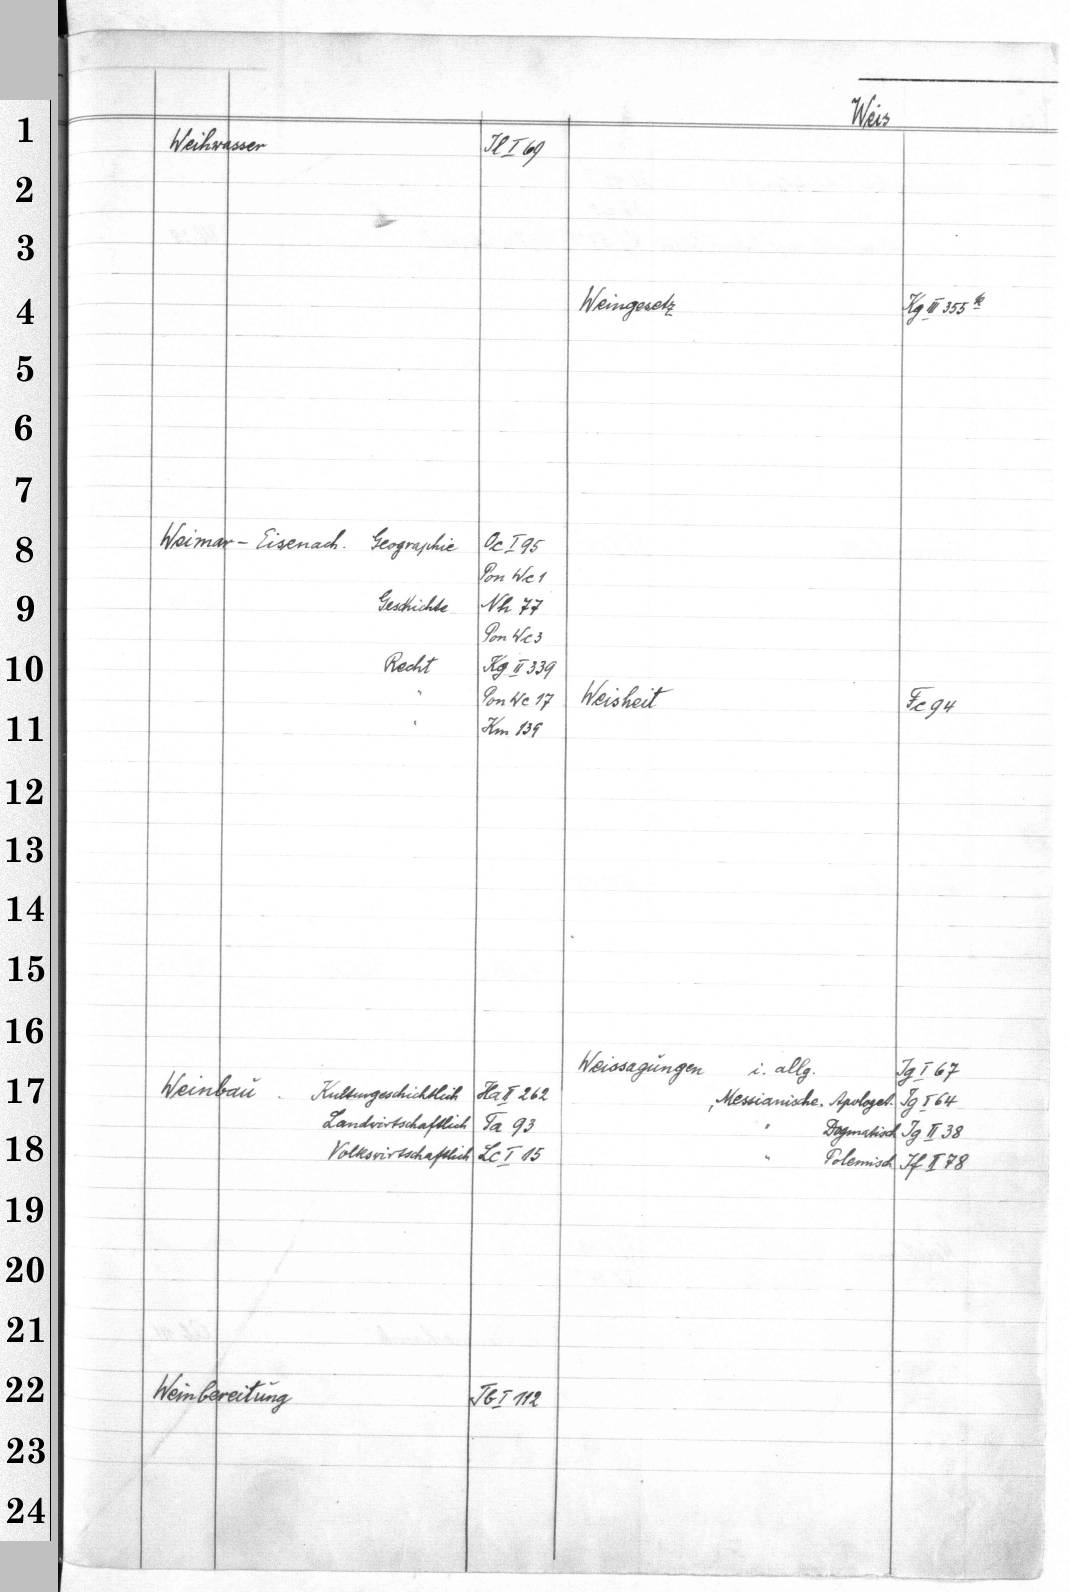 Weis
1
Weihwasser Il I 69
2
3
4
5
6
7
8
Weimar - Eisenach. Geographie Oc I 95
Pon Wc 1
9
Geschichte Nh 77
Pon Wc 3
10
Recht Kg II 339
" Pon Wc 17
11
" Km 139
12
13
14
15
16
17
Weinbau . Kulturgeschichtlich Ha II 262
Landwirtschaftlich Ta 93
18
Volkswirtschaftlich Lc I 15
19
20
21
22
Weinbereitung Tb I 112
23
24
Weingesetz Kg III 355
Weisheit Fc 94
Weissagungen i. allg. Ig I 67
Messianische. Apologet. Ig I 64
" Dogmatisch Ig II 38
" Polemisch If II 78